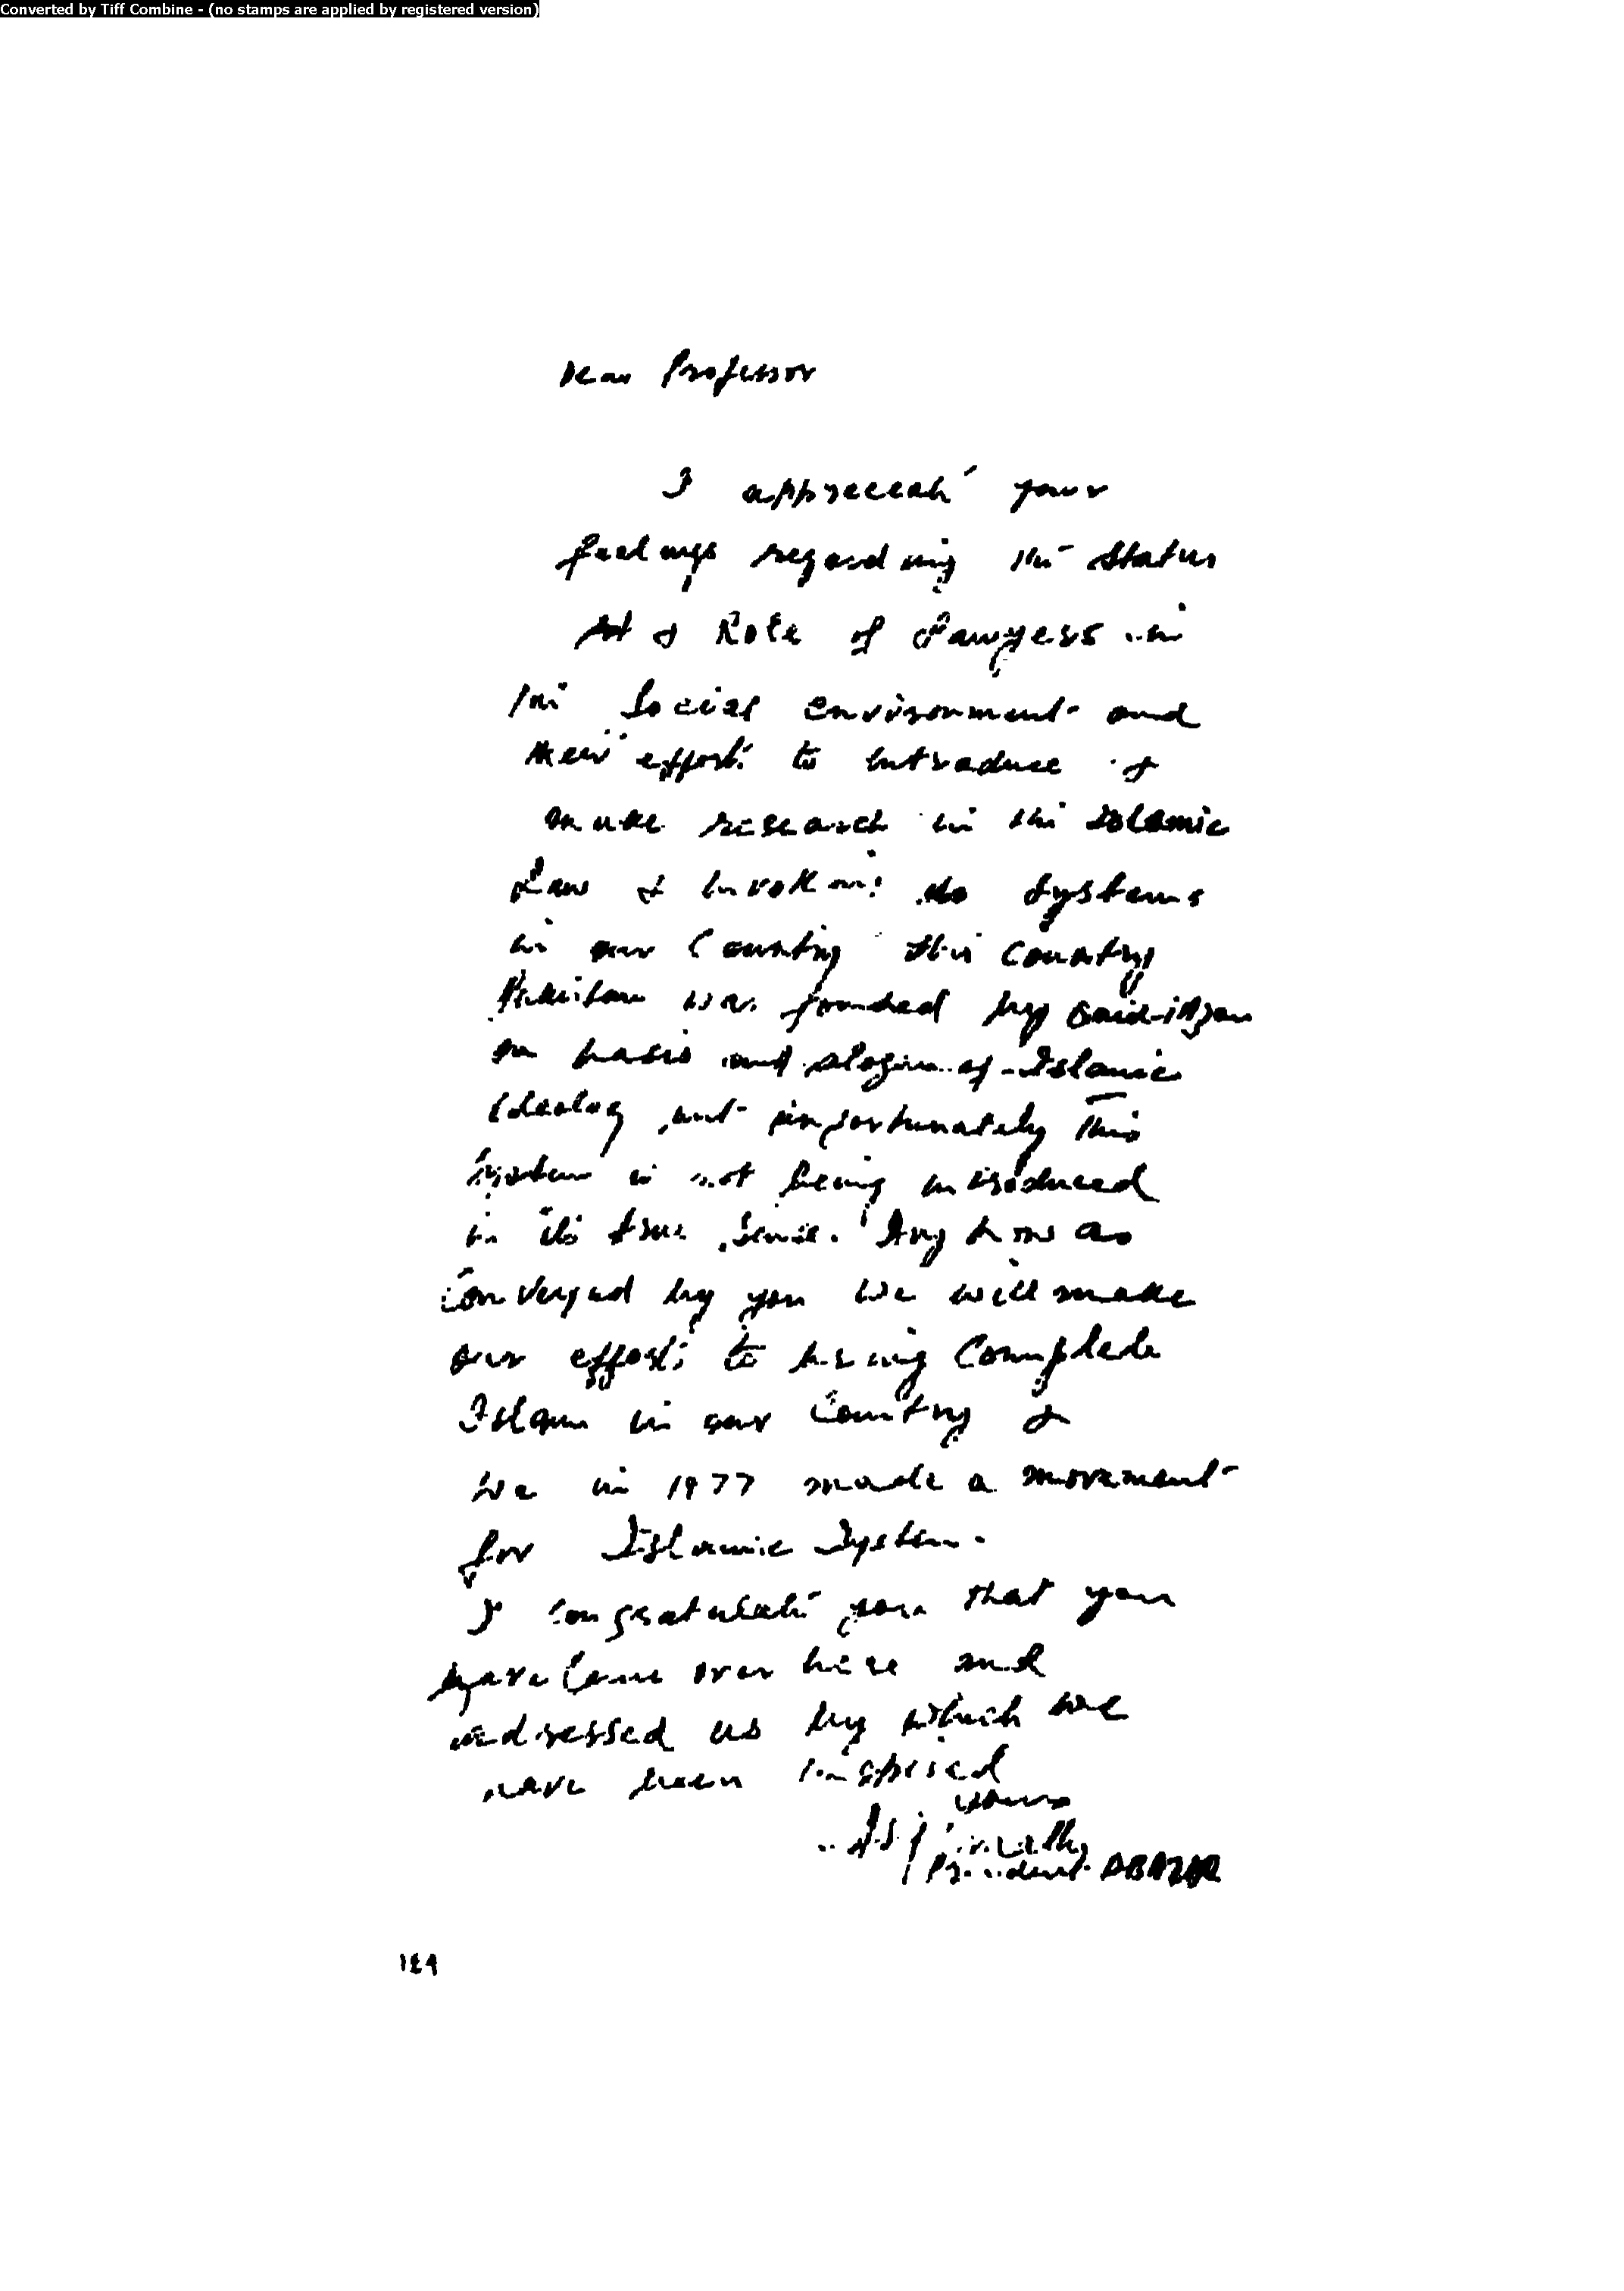 Converted by Tiff Combine - (no stamps are applied by registered version)
Dear Professor
I appreciate your
feelings regarding the status
& Role of Lawyers in
the Social environment and
their efforts to introduce &
make research in the Islamic
Law & invoking systems
in our Country this country
Pakistan was founded by
on basis and slogan of Islamic
Ideology but unfortunately this
system is not being introduced
in its true sense. Any how as
Conveyed by you we will make
our efforts to bring Complete
Islam in our Country &
We in 1977 made a movement
for Islamic System.
I congratulate you that you
have Come over here and
addressed us by which we
have been inspired
yours
President
١٤٩